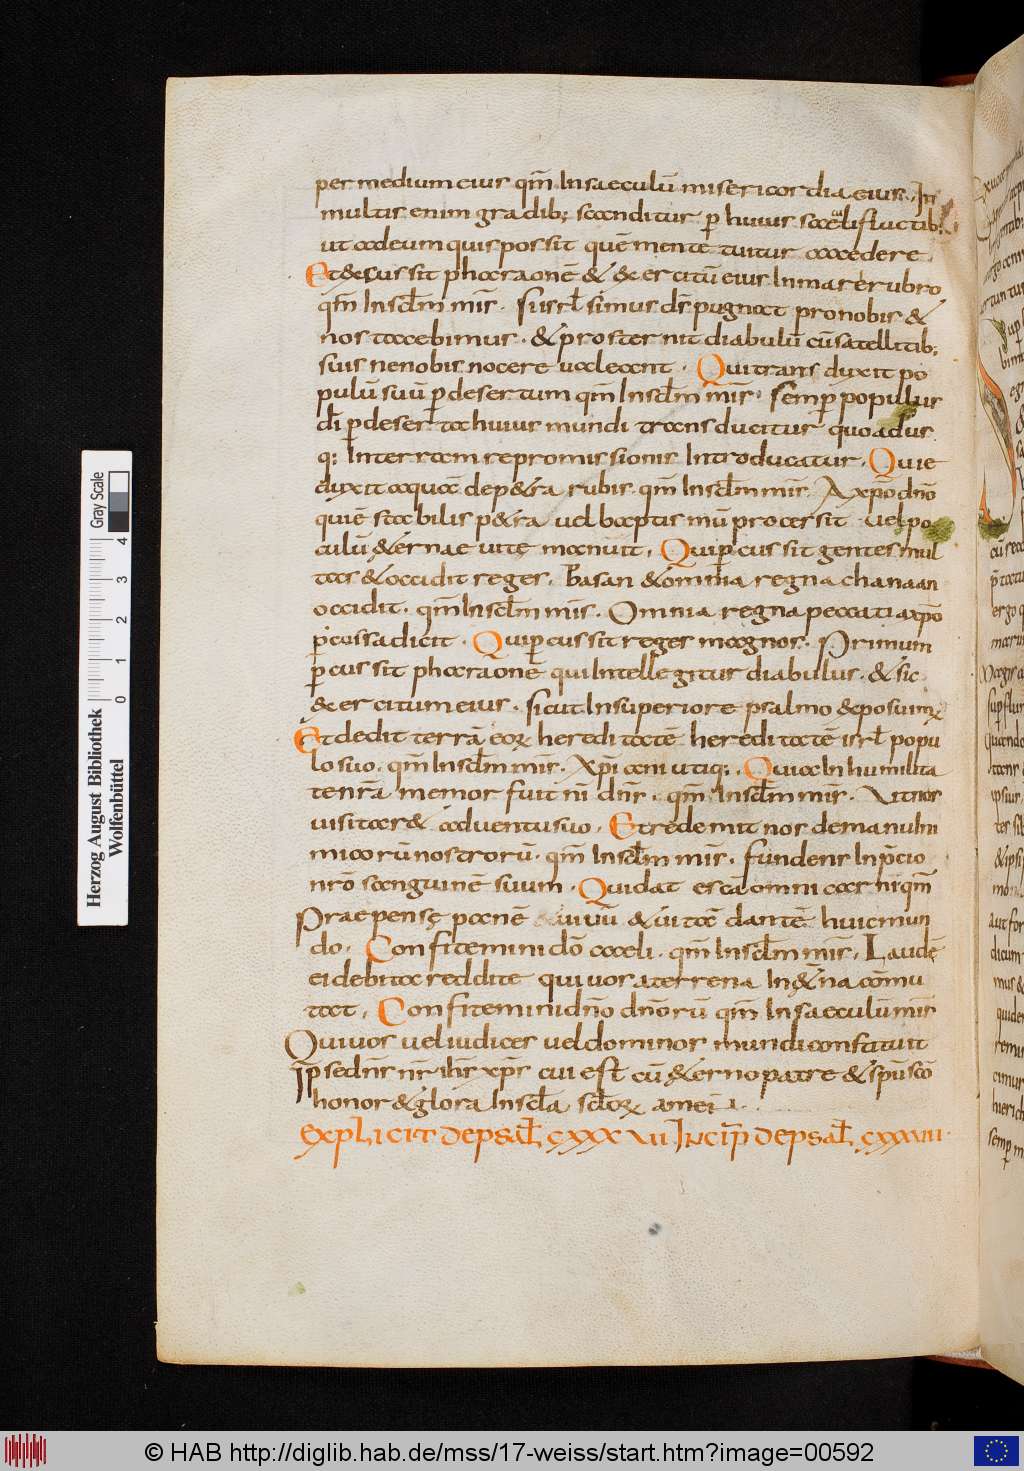 per medium eius qm̄ In saeculū misericordia eius. In
multis enim gradib; scanditur p̱ huius saeculi fluctib;
ut addeum quis possit quē mente tuitur accedere
Et excussit pharaonē & exercitū eius In mare rubro
qm̄ In sclm̄ mis̄. Susrl̄ simus ds̄ pugnat pro nobis &
nos tacebimus. & prosternit diabulū cū satellitib;
suis ne nobis nocere valeant. Qui transduxit po
pulū suū p̱ desertum qm̄ In sclm̄ mis̄. Semp̱ populus
dī p̱ deserta huius mundi transducitur quo adus
q; In terram repromissionis Introducatur. Quie
duxit aquā de p&ra rubis qm̄ In sclm̄ mis̄. A xp̄o dn̄o
qui ē stabilis p&ra ubi baptismū processit vel po
culū &ernae uitę manuit. Qui p̱cussit gentes mul
tas & occidit reges. Basan & omnia regna chanaan
occidit. qm̄ In sclm̄ mis̄. Omnia regna peccati axp̄o
p̱cussa dicit. Qui p̱cussit reges magnos. Primum
p̱cussit pharaonē qui Intellegitur diabulus. & sic
exercitum eius. sicut In superiore psalmo & posuim;
Et dedit terrā eorꝝ hereditatē hereditatē isrl̄ popu
lo suo. qm̄ In sclm̄ mis̄. Xp̄iani utiq;. Quia In humilita
te nr̄a memor fuit nī dn̄s. qm̄ In sclm̄ mis̄. Vt nos
uisitar& aduentu suo. Et redemit nos de manu Ini
micorū nostrorū. qm̄ In sclm̄ mis̄. fundens In p̄cio
nr̄o sanguinē suum. Qui dat escā omni carni qm̄
Prae pensę panē uiuū & uitā dantē huic mun
do. Confitemini dō caeli. qm̄ In sclm̄ mis̄. Laudē
ei debita reddite qui uos a terrena In &̄na cōmu
tat. Confitemini dn̄o dn̄orū qm̄ In saeculū mis̄
Qui uos vel iudices vel dominos mundi constituit
Ip̄se dn̄s nr̄ ihs̄ xp̄s cui est cū &erno patre & sp̄u scō
honor & gloria In scl̄a scl̄orꝝ amen
EXPLICIT DE PSAL̄ CXXXVII INCIP̄ DE PSAL̄ CXXXVIII
Herzog August Bibliothek
Wolfenbüttel
Gray Scale
0 1 2 3 4
© HAB http://diglib.hab.de/mss/17-weiss/start.htm?image=00592